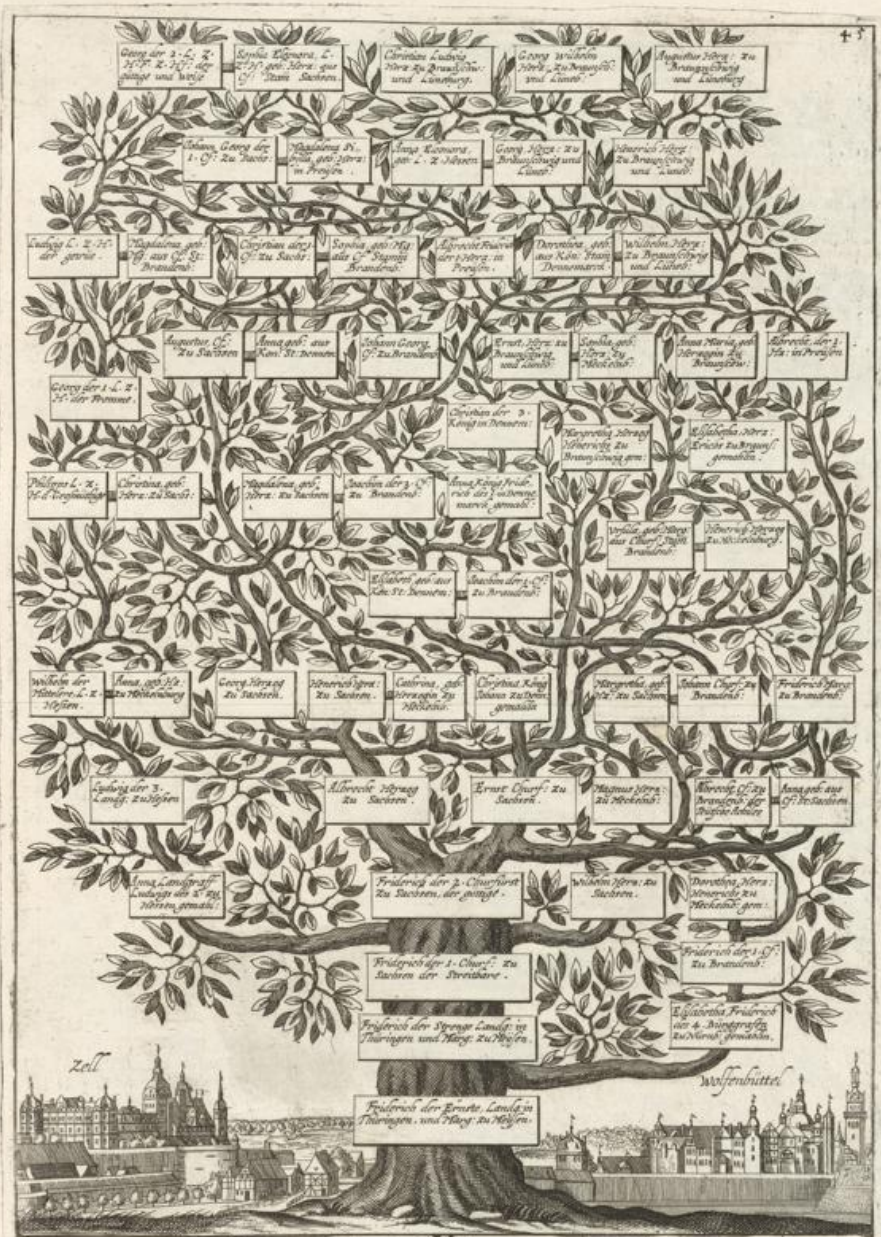 45
Georg der 2. L. Z.
H. F. Z. Hf: der
gütige und weise
Sophia Eleonora, L.
Z. H. geb: Herz: aus
Cf. Stam Sachsen.
Christian Ludwig
Herz: zu Braunschw:
und Lüneburg.
Georg Wilhelm
Herz: zu Braunsch:
und Lüneb:
Augustus Herz: zu
Braunschwig
und Lüneburg
Johann Georg der
1. Cf: zu Sachs:
Magdalena Si-
bylla, geb: Herz:
in Preusen.
Anna Eleonora,
geb: L. Z. Hessen
Georg, Herz: zu
Braunschwig und
Lüneb:
Henrich Herz:
zu Braunschwig
und Lüneb:
Ludwig L. Z. H.
der getrüe
Magdalena geb:
Mg: aus Cf: St:
Brandenb:
Christian der 1.
Cf: zu Sachs:
Sophia, geb: Mg:
aus Cf: Stamm
Brandenb:
Albrecht Fridrich
der 2 Herz: in
Preusen.
Dorothea, geb:
aus Kön: Stam
Dennemarck.
Wilhelm Herz:
zu Braunschwig
und Lüneb:
Augustus, Cf:
zu Sachsen
Anna geb: aus
Kön: St: Dennem:
Johann Georg,
Cf: zu Brandenb:
Ernst, Herz: zu
Braunschwig
und Lüneb:
Sophia, geb:
Herz: zu
Meckelnb:
Anna Maria, geb:
Herzogin zu
Braunschw:
Albrecht, der 1.
Hz: in Preusen
Georg der 1. L. Z.
H. der Fromme.
Christian der 3.
König in Dennem:
Margretha Herzog
Henrichs zu
Braunschwig gem:
Elisabetha, Herz:
Erichs zu Brauns:
gemahlin.
Philipps L. Z.
H. d. Grosmütige
Christina, geb:
Herz: zu Sachs:
Magdalena, geb:
Herz: zu Sachsen
Joachim der 2. Cf:
zu Brandenb:
Anna König Fride-
rich des 1. in Denne-
marck, gemahl:
Ursula, geb: Marg:
aus Churf: Stam
Brandenb:
Henrich, Herzog
zu Meckelnburg.
Elisabeth, geb: aus
Kön: St: Dennem:
Joachim der 1. Cf:
zu Brandenb:
Wilhelm der
Mittlere, L. Z.
Hessen.
Anna, geb: Hz:
zu Meckelnburg
Georg, Herzog
zu Sachsen.
Henerich Herz:
zu Sachsen.
Cathrina, geb:
Herzogin zu
Meckelnb:
Christina König
Johans zu Denn:
gemahlin
Margretha, geb:
Hz: zu Sachsen
Johann Churf: zu
Brandenb:
Friderich Marg:
zu Brandenb:
Ludwig der 3.
Landg: zu Hessen
Albrecht Herzog
zu Sachsen.
Ernst Churf: zu
Sachsen.
Magnus Herz:
zu Meckelnb:
Albrecht, Cf: zu
Brandenb: der
Teutsche Achilles
Anna geb: aus
Cf: St: Sachsen.
Anna Landgraff
Ludwigs des 2. zu
Hessen gemahl:
Friderich der 2. Churfürst
zu Sachsen, der gütige.
Wilhelm Herz: zu
Sachsen.
Dorothea, Herz:
Henerichs zu
Meckelnb: gem:
Friderich der 1. Churf: zu
Sachsen der Streitbare.
Friderich der 1. Cf:
zu Brandenb:
Friderich der Strenge Landg: in
Thüringen und Marg: zu Meysen.
Elisabetha, Friderich
des 4. Burggrafen
zu Nürnb: gemahlin.
Zell
Wolfenbüttel
Friderich der Ernste, Landg: in
Thüringen. und Marg: zu Meysen.